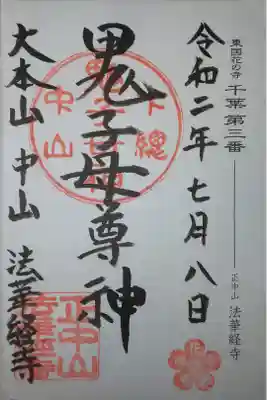 東国花の寺 千葉 第三番 正中山 法華経寺
令和二年 七月八日
鬼子母尊神
大本山 中山 法華経寺
下總
中山
正中山
法華経寺